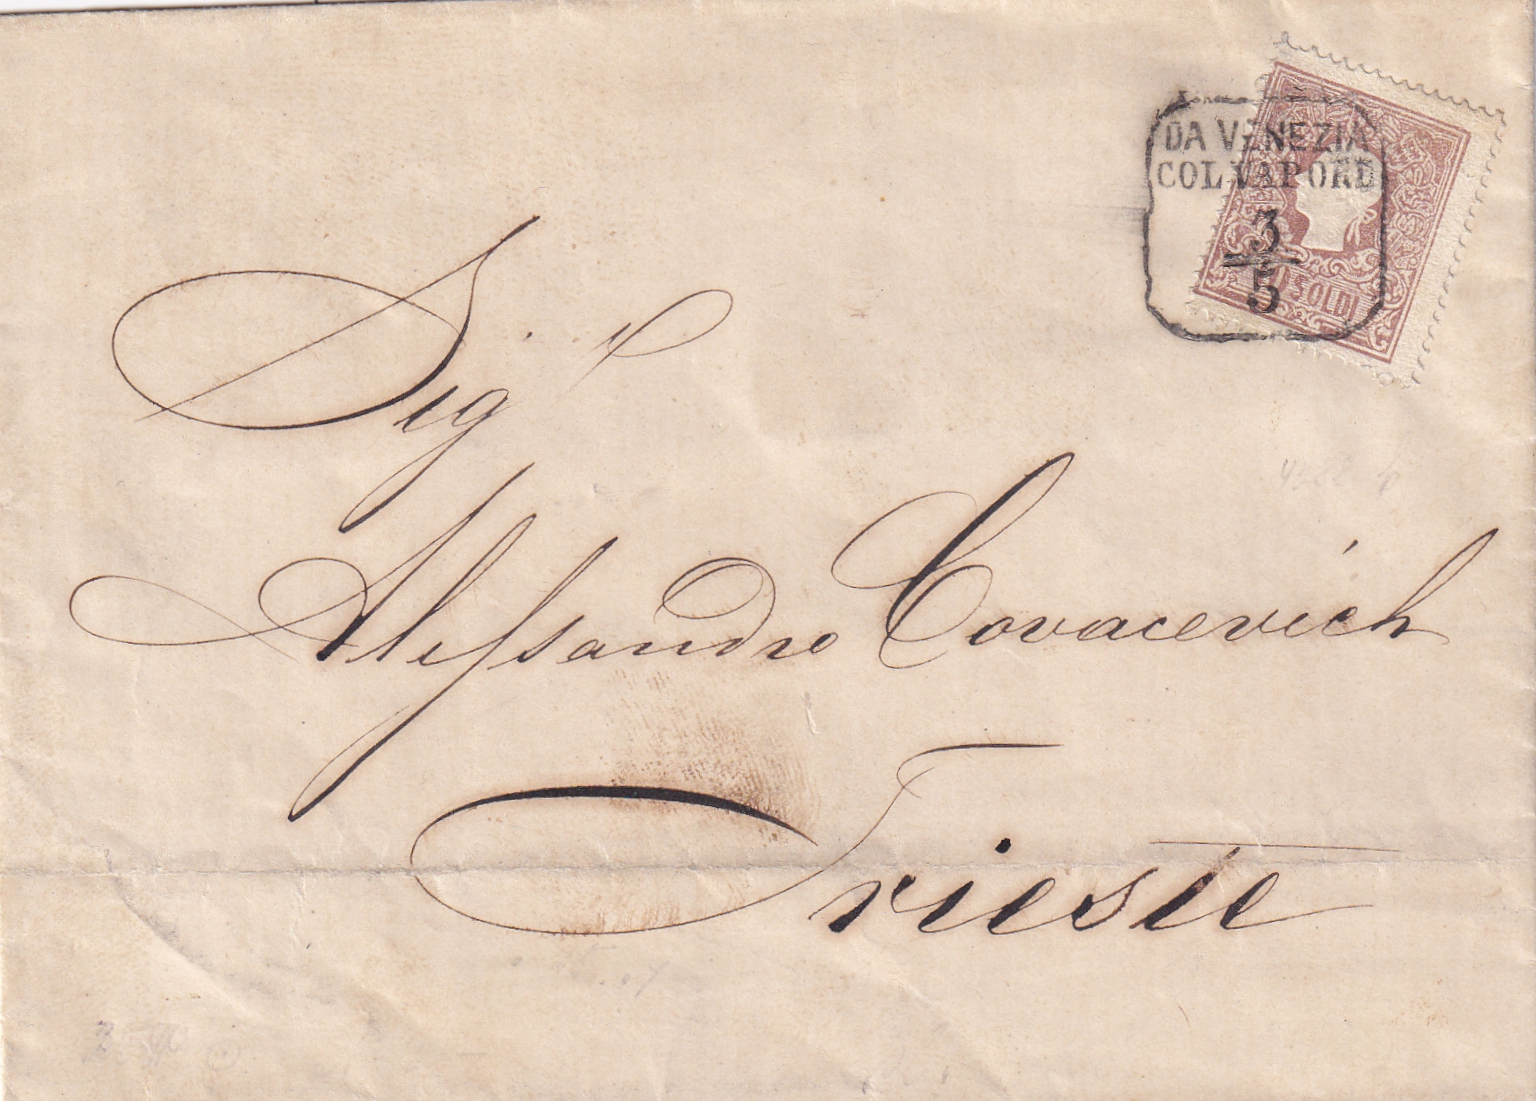 DA VENEZIA
COL VAPORE
3
5
SOLDI
Sigr
Alessandro Covacevich
Trieste